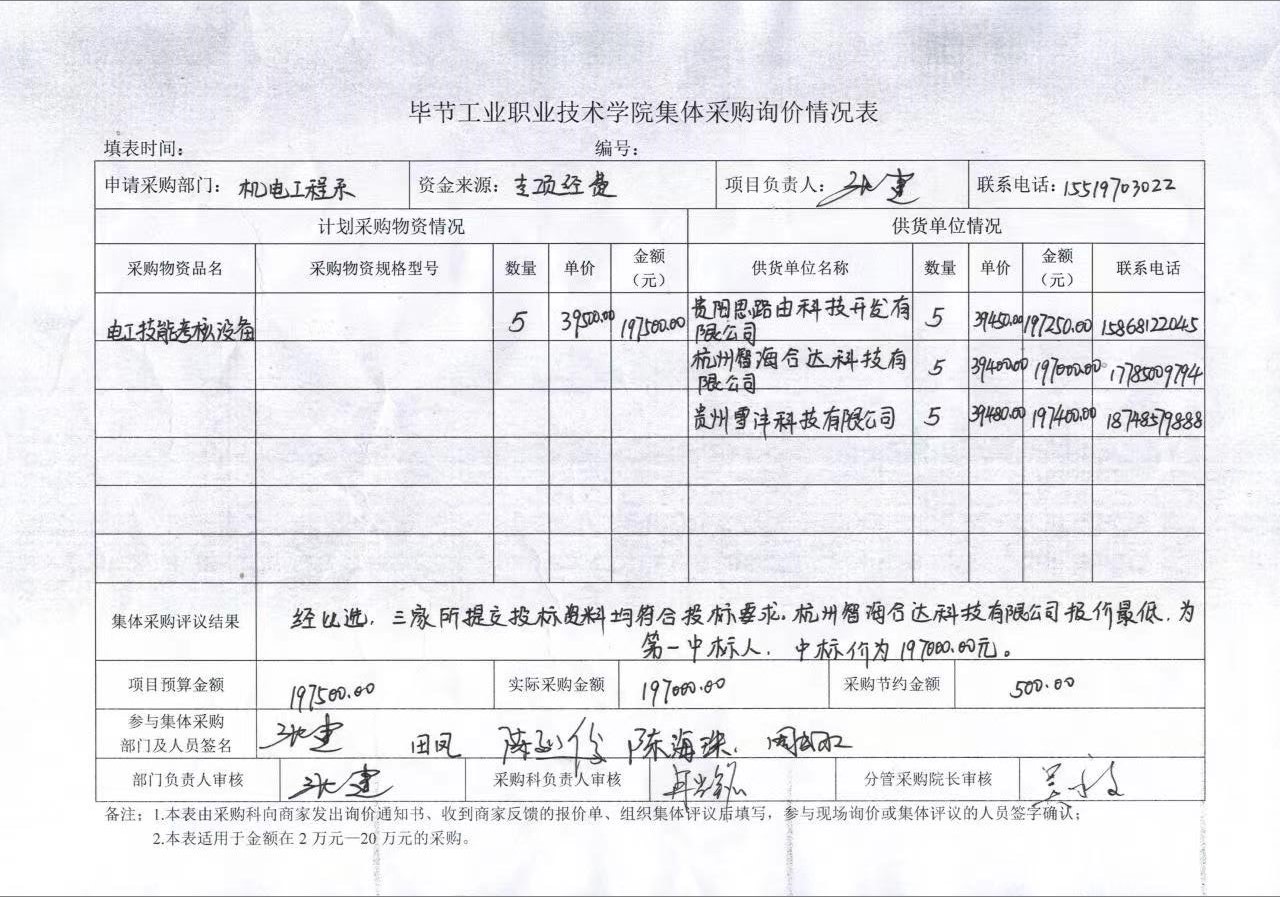 毕节工业职业技术学院集体采购询价情况表
填表时间： 编号：
申请采购部门： 机电工程系 资金来源： 专项经费 项目负责人： 张建 联系电话：15519703022
计划采购物资情况 供货单位情况
采购物资品名 采购物资规格型号 数量 单价 金额（元） 供货单位名称 数量 单价 金额（元） 联系电话
电工技能考核设备 5 39500.00 197500.00 贵阳思路由科技开发有限公司 5 39450.00 197250.00 15868122045
杭州智海合达科技有限公司 5 39400.00 197000.00 17785009794
贵州雪沣科技有限公司 5 39480.00 197400.00 18748579888
集体采购评议结果 经比选，三家所提交投标资料均符合投标要求。杭州智海合达科技有限公司报价最低，为
第一中标人，中标价为197000.00元。
项目预算金额 197500.00 实际采购金额 197000.00 采购节约金额 500.00
参与集体采购
部门及人员签名 张建 田凤 陈海珠
部门负责人审核 张建 采购科负责人审核 分管采购院长审核
备注：1.本表由采购科向商家发出询价通知书、收到商家反馈的报价单、组织集体评议后填写，参与现场询价或集体评议的人员签字确认；
2.本表适用于金额在 2 万元—20 万元的采购。